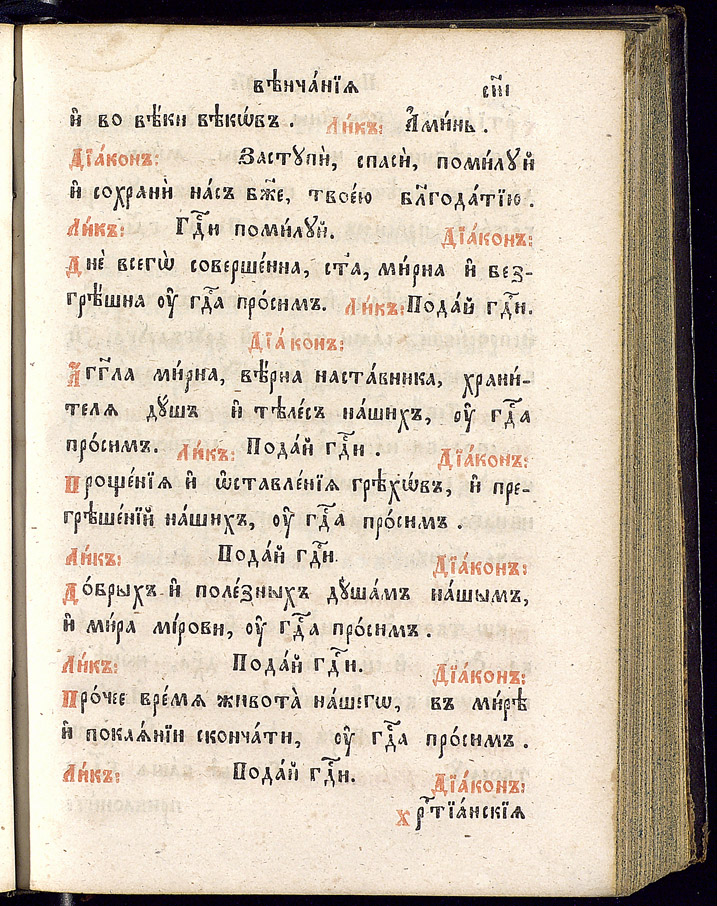 вѣнча́нїѧ сн҃і
и҆ во вѣ́ки вѣкѡ́въ. Ли́къ: А҆ми́нь.
Дїа́конъ: Заступѝ, спасѝ, поми́лꙋй
и҆ сохранѝ на́съ бж҃е, твое́ю бл҃года́тїю.
Ли́къ: Гдⷭ҇и поми́лꙋй. Дїа́конъ:
Днѐ всегѡ̀ соверше́нна, ст҃а, ми́рна и҆ без-
грѣ́шна ᲂу҆ гдⷭ҇а про́симъ. Ли́къ: Пода́й гдⷭ҇и.
Дїа́конъ:
А҆́гг҃ла ми́рна, вѣ́рна наста́вника, храни́-
телѧ дꙋ́шъ и҆ тѣле́съ на́шихъ, ᲂу҆ гдⷭ҇а
про́симъ. Ли́къ: Пода́й гдⷭ҇и. Дїа́конъ:
Проще́нїѧ и҆ ѡ҆ставле́нїѧ грѣхѡ́въ, и҆ пре-
грѣше́нїй на́шихъ, ᲂу҆ гдⷭ҇а про́симъ.
Ли́къ: Пода́й гдⷭ҇и Дїа́конъ:
До́брыхъ и҆ поле́зныхъ дꙋша́мъ на́шымъ,
и҆ ми́ра мі́рови, ᲂу҆ гдⷭ҇а про́симъ.
Ли́къ: Пода́й гдⷭ҇и. Дїа́конъ:
Про́чее вре́мѧ живота̀ на́шегѡ, въ ми́рѣ
и҆ покаѧ́нїи сконча́ти, ᲂу҆ гдⷭ҇а про́симъ.
Ли́къ: Пода́й гдⷭ҇и. Дїа́конъ:
Хрⷭ҇тїа́нскїѧ